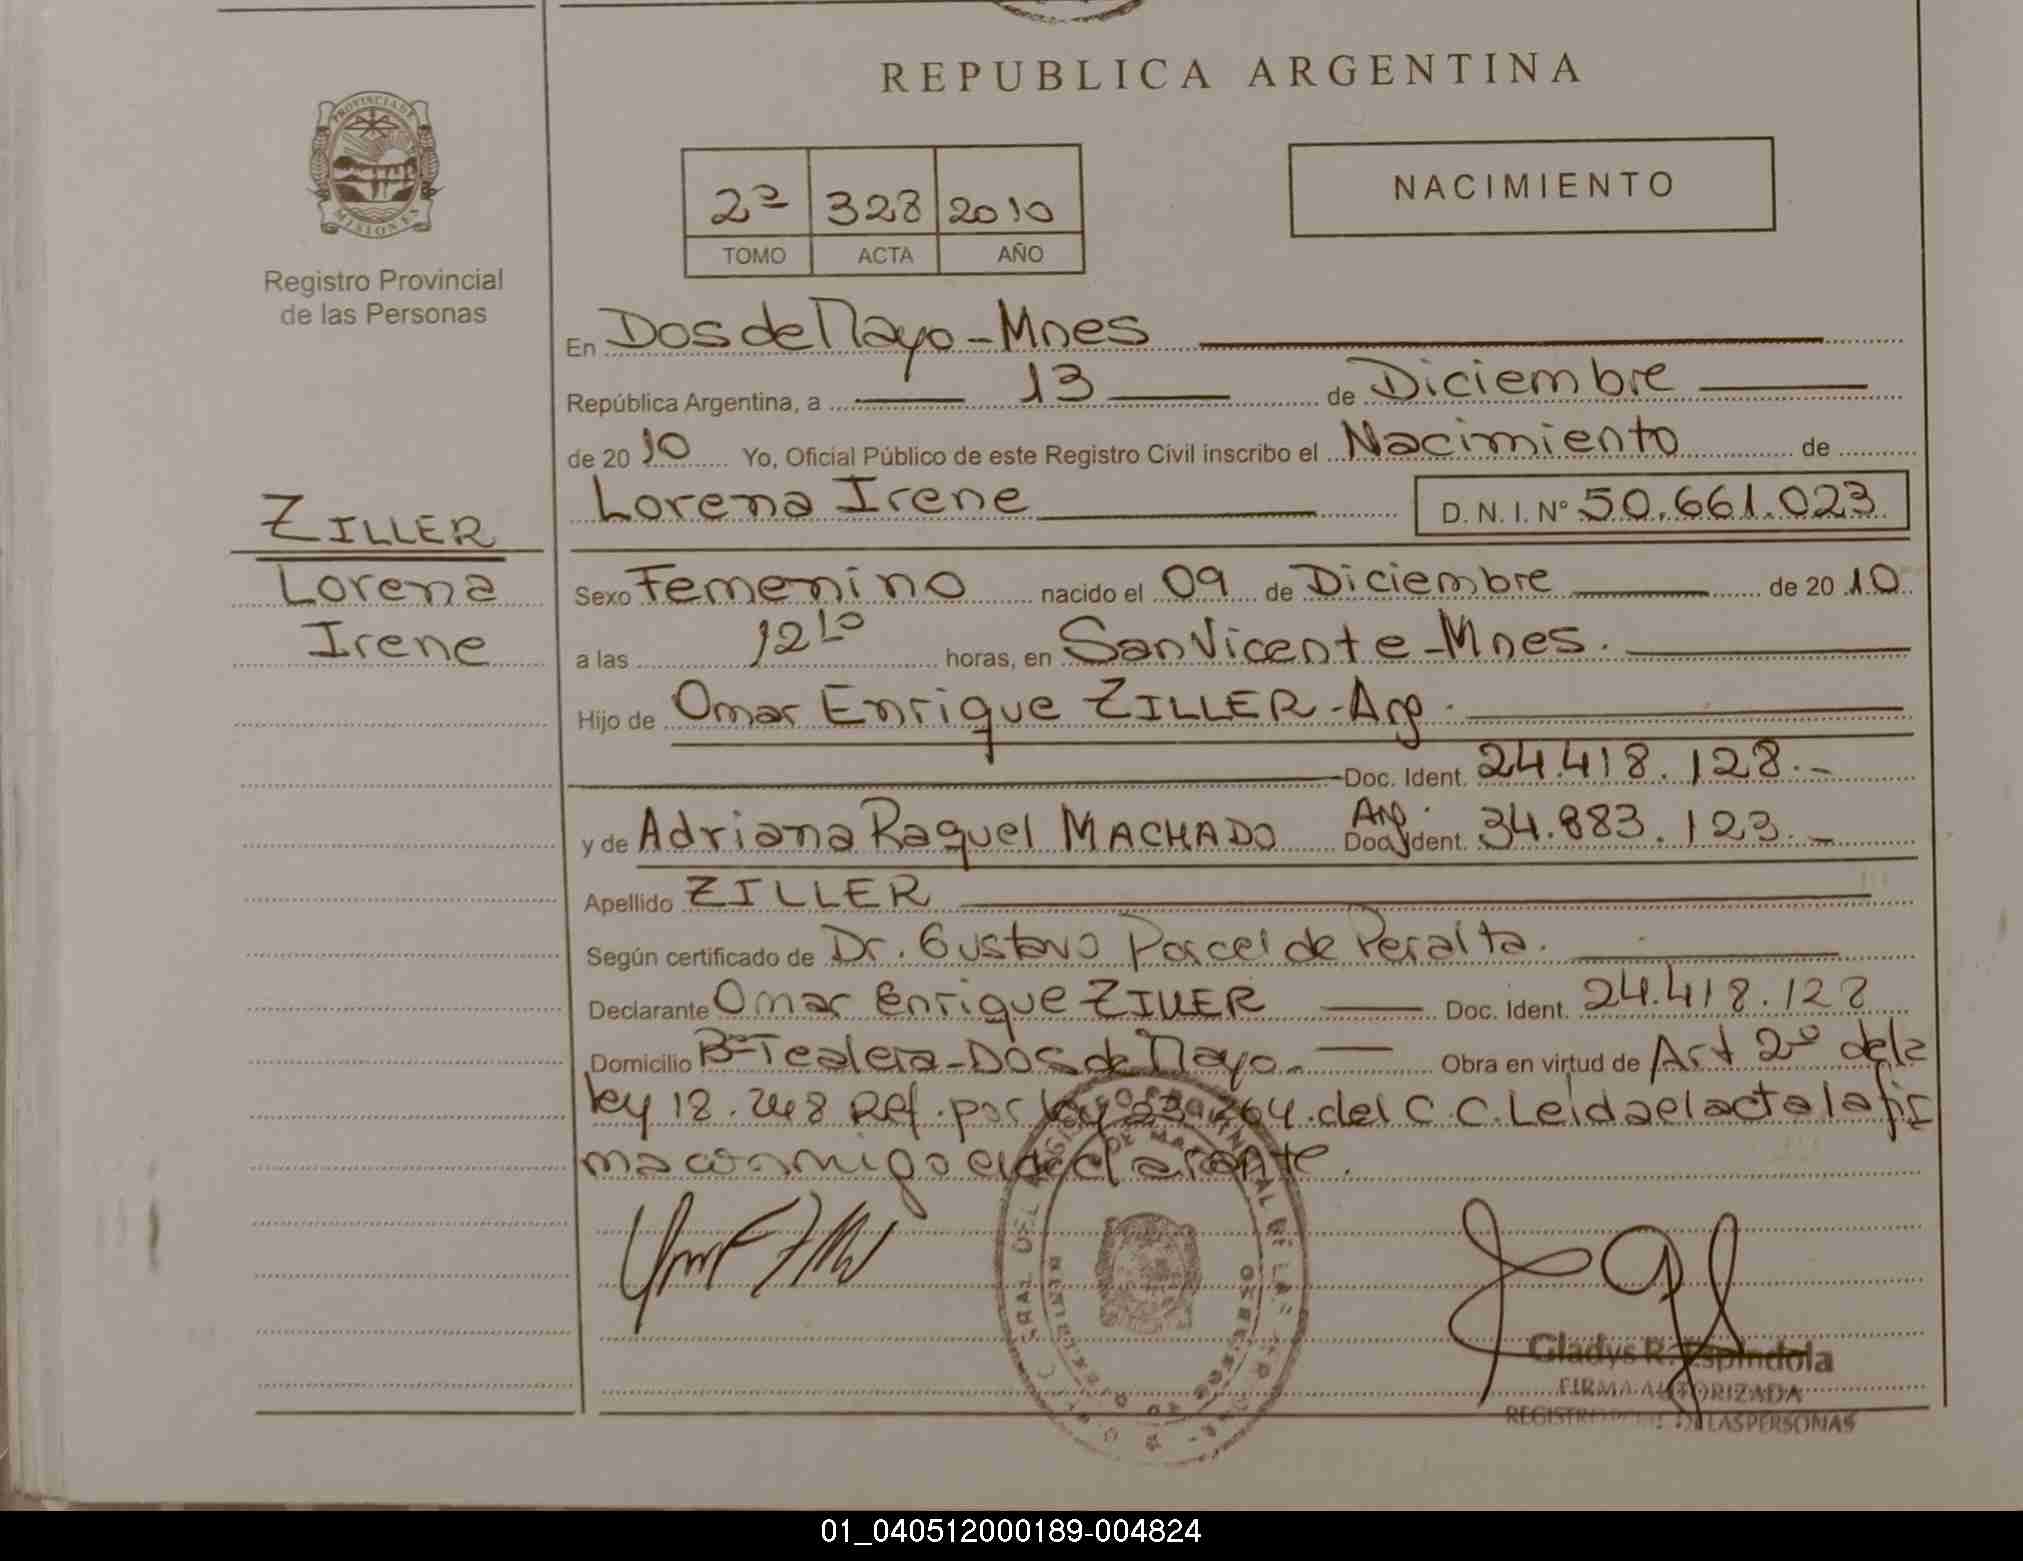 REPUBLICA ARGENTINA
PROVINCIA DE MISIONES
Registro Provincial
de las Personas
2ª 328 2010
TOMO ACTA AÑO
NACIMIENTO
En Dos de Mayo - Mnes
República Argentina, a 13 de Diciembre
de 2010 Yo, Oficial Público de este Registro Civil inscribo el Nacimiento de
Lorena Irene D. N. I. Nº 50.661.023
ZILLER
Lorena
Irene
Sexo Femenino nacido el 09 de Diciembre de 2010
a las 12 10 horas, en San Vicente - Mnes.
Hijo de Omar Enrique ZILLER - Arg.
Doc. Ident. 24.418.128.-
y de Adriana Raquel MACHADO Arg. Doc. Ident. 34.883.123.-
Apellido ZILLER
Según certificado de Dr. Gustavo Porcel de Peralta.
Declarante Omar Enrique ZILLER Doc. Ident. 24.418.128
Domicilio Bº Tealera - Dos de Mayo.- Obra en virtud de Art 2º de la
ley 18.248 Ref. por ley 23.264 del C.C. Leida el acta la fir
ma conmigo el declarante.
Gladys R. Espindola
FIRMA AUTORIZADA
REGISTRO DE LAS PERSONAS
01_040512000189-004824